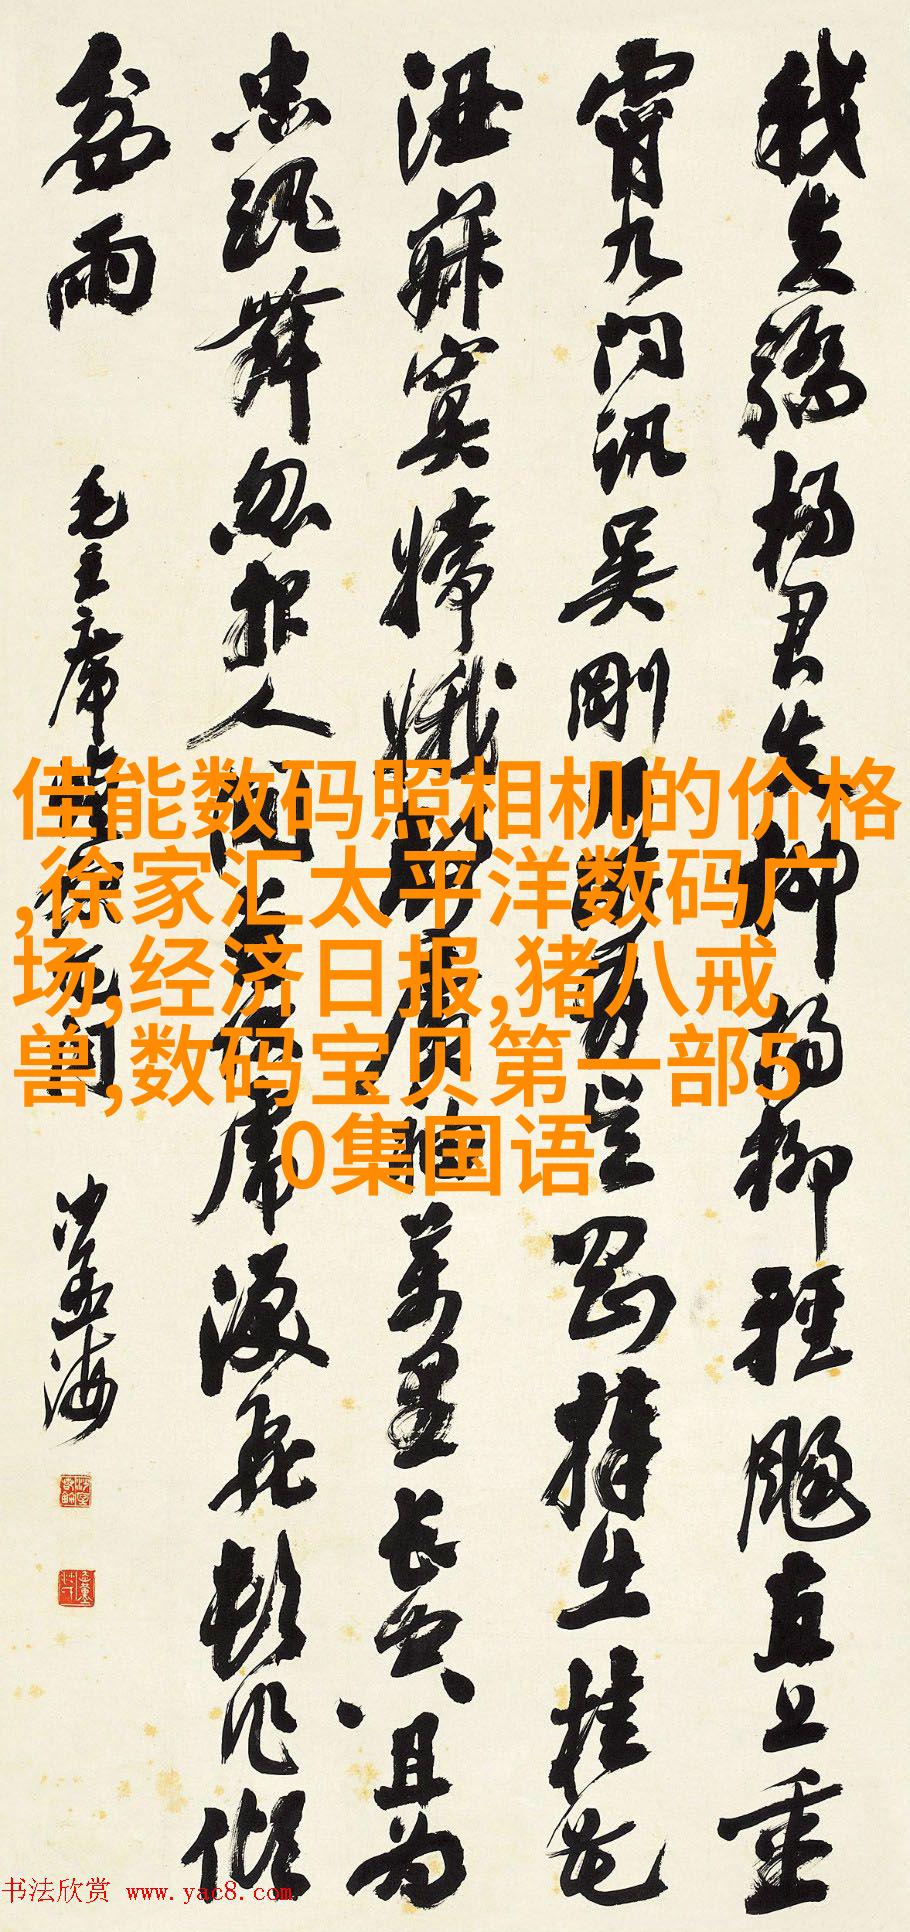 我失驕楊君失柳楊柳輕颺直上重
霄九問訊吳剛何所有吳剛捧出桂花
酒寂寞嫦娥舒廣袖萬里長空且为
忠魂舞忽报人間曾伏虎淚飛頓作傾
盆雨
毛主席蝶恋花词
沙孟海
佳能数码照相机的价格
,徐家汇太平洋数码广
场,经济日报,猪八戒
兽,数码宝贝第一部5
0集国语
书法欣赏 www.yac8.com